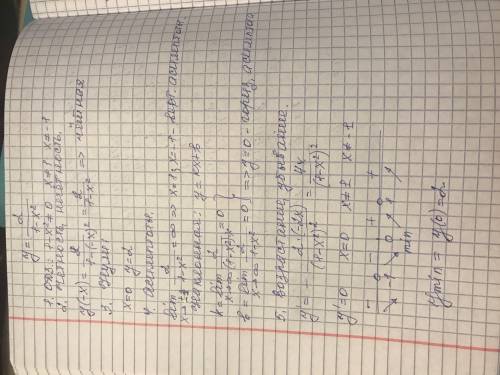 y = 2/(1-x²)
1. ОДЗ: 1-x² ≠ 0 x ≠ 1 x ≠ -1
2. Чётность, нечётность.
y(-x) = 2/(1-(-x)²) = 2/(1-x²) => чётная
3. Нули:
x=0 y=2
4. Асимптоты.
lim x→±1 2/(1-x²) = ∞ => x=1; x=-1 - верт. асимптоты
наклонная: y=kx+b
k = lim x→∞ 2/((1-x²)x) = 0
b = lim x→∞ 2/(1-x²) = 0 => y=0 - гориз. асимптота
5. Возрастание, убывание.
y' = - 2·(-2x)/(1-x²)² = 4x/(1-x²)²
y'=0 x=0 x≠1 x≠-1
- - + +
-1 0 1
min
y min = y(0) = 2